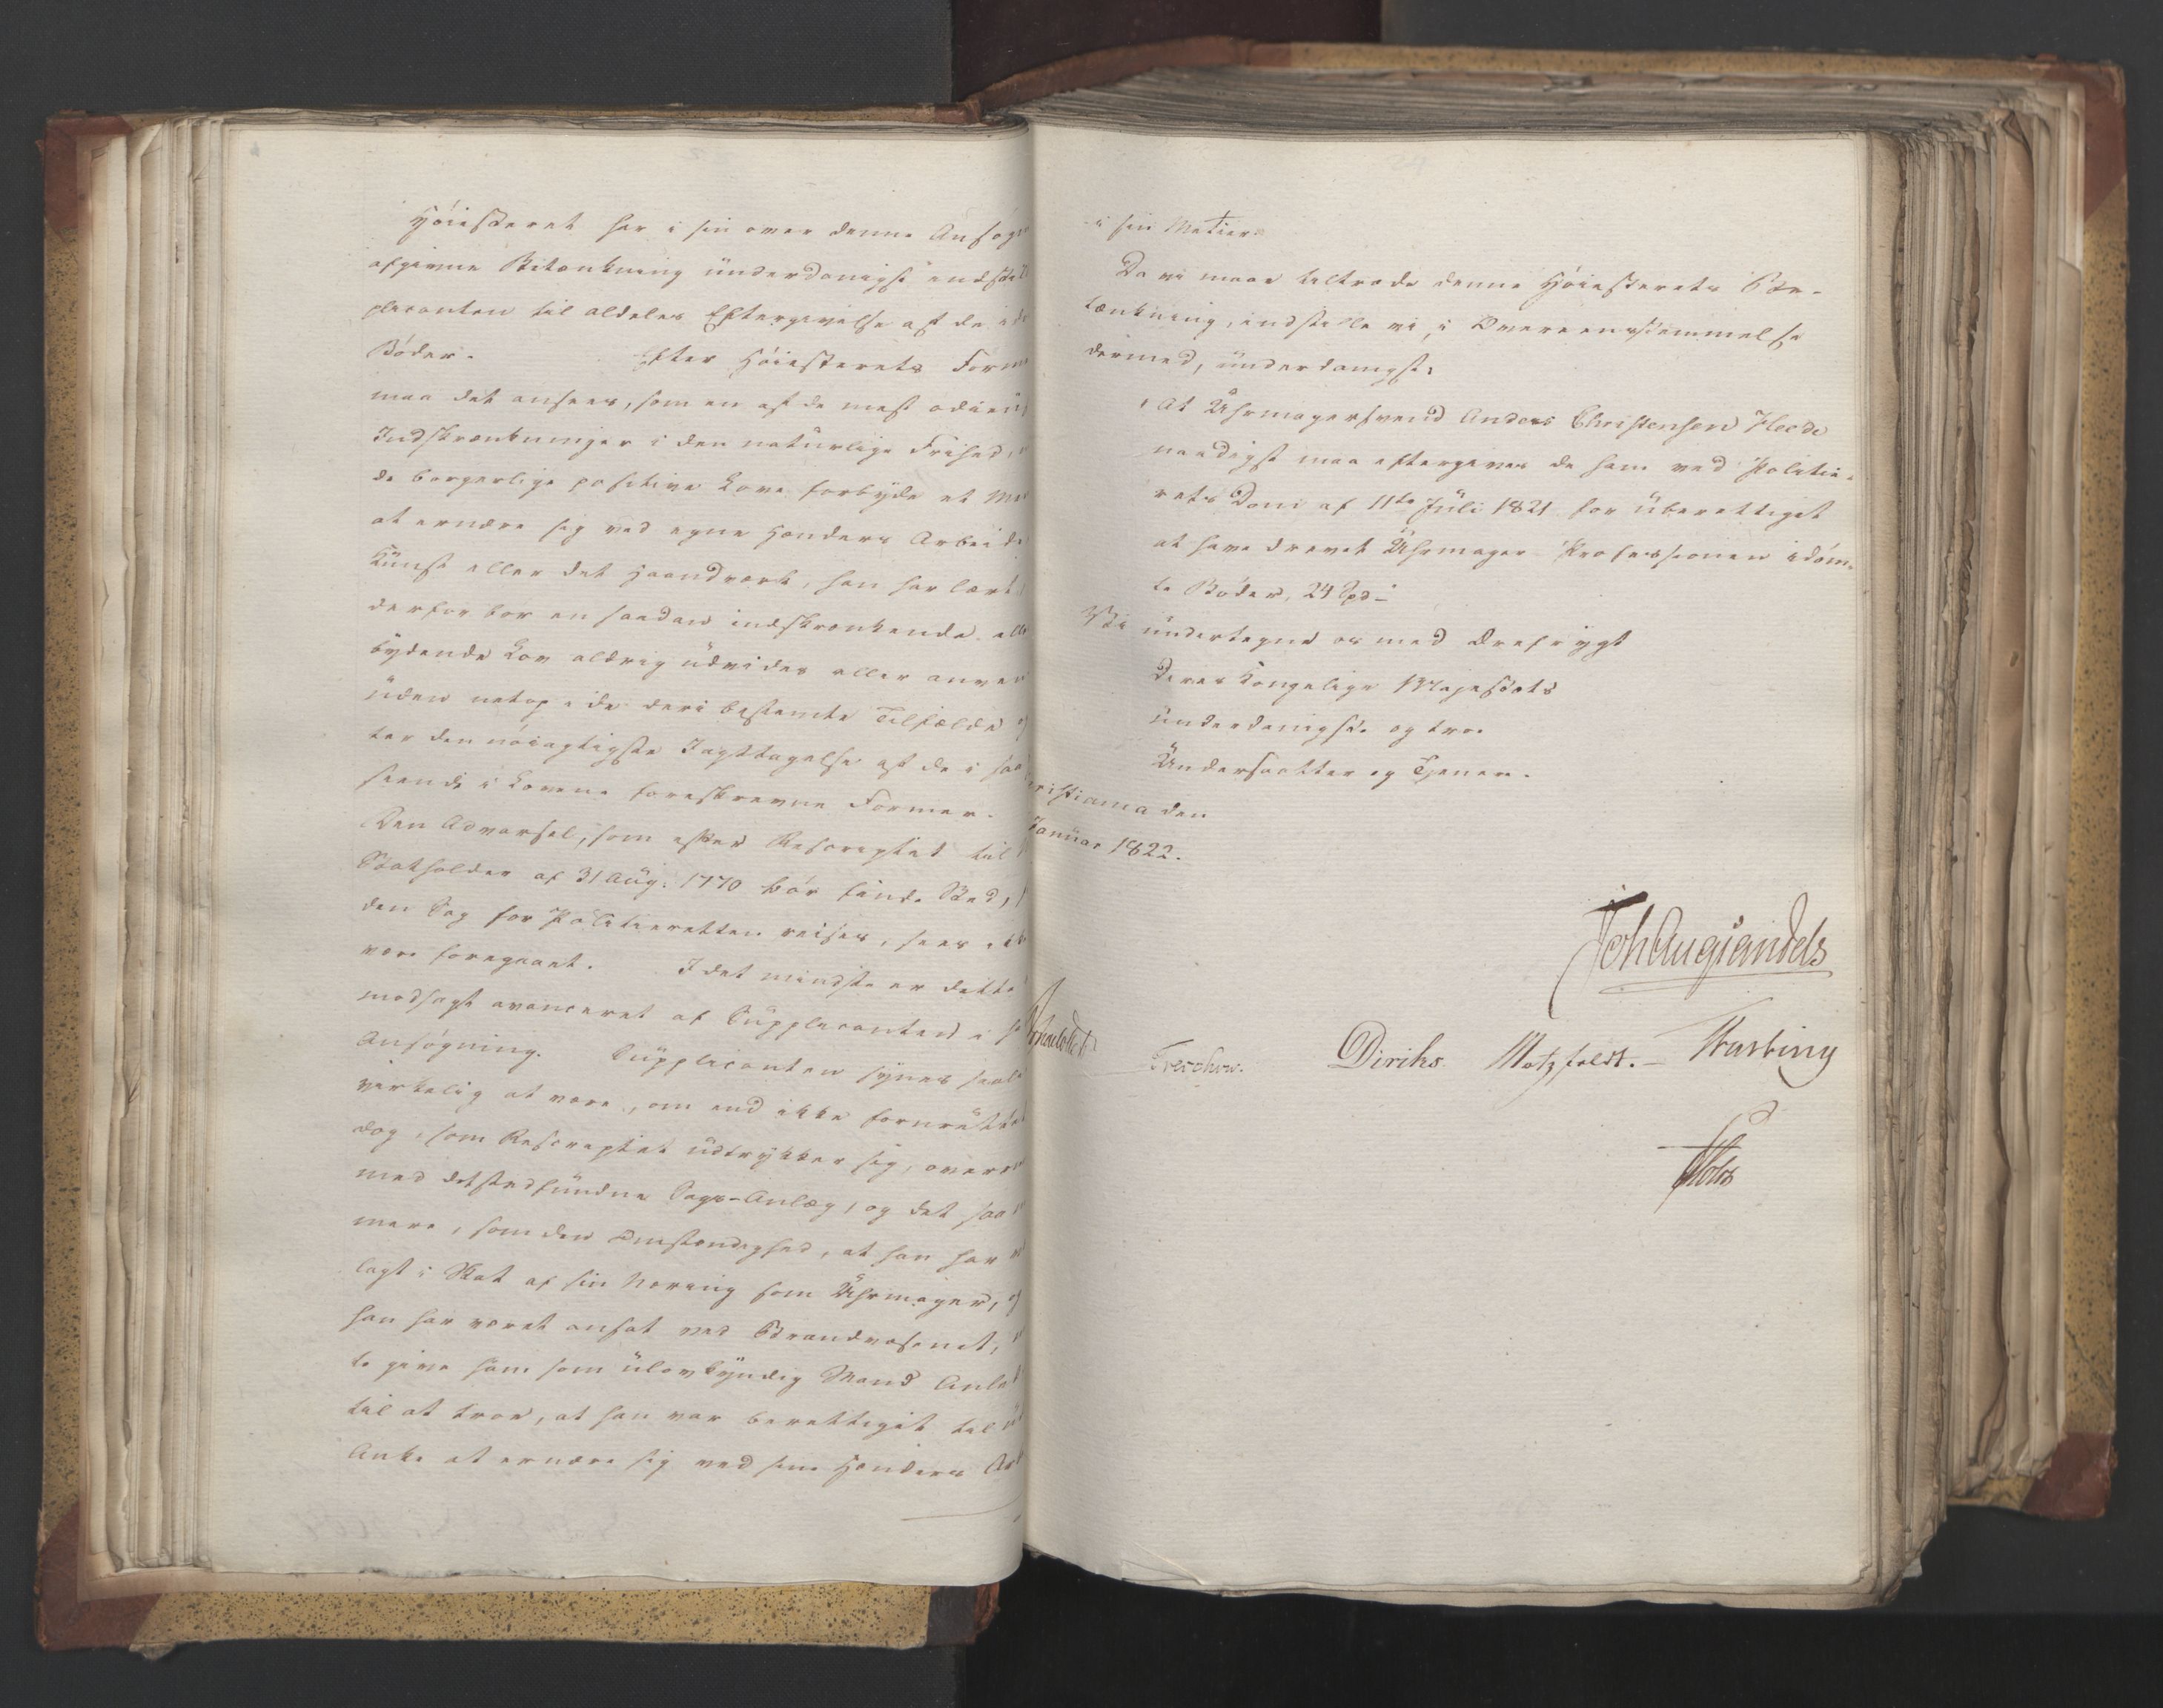 Høiesteret har i sin over denne Ansøg
afgivne Betænkning underdanigst indstil
plicanten til aldeles Eftergivelse af de id
Bøder. Efter Høiesterets Form
maa det ansees, som en af de mest odieus
Indskrænkninger i den naturlige Frihed,
de borgerlige positive Love forbyde et Me
at ernære sig ved egne Hænders Arbeide
Kunst eller det Haandværk, han har lært
derfor bør en saadan indskrænkende elle
bydende Lov aldrig udvides eller anven
uden netop i de deri bestemte Tilfælde
ter den nøiagtigste Iagttagelse af de i saa
seende i Lovene foreskrevne Former.
Den Advarsel, som efter Rescriptet til
Statholder af 31 Aug. 1770 bør finde Sted,
den Sag for Politieretten reises, sees ikke
være foregaaet. I det mindste er dette
modsagt avanceret af Supplicanten i s
Ansøgning. Supplicanten synes saal
virkelig at være, om end ikke fornrettet
dog, som Rescriptet udtrykker sig, overr
med det stedfundne Sags-Anlæg, og det saa
mere, som den Omstændighed, at han har
lagt i Skat af sin Næring som Uhrmager,
han har været ansat ved Brandvæsenet,
te give ham som ulovkyndig Mand Anled
til at troe, at han var berettiget til
Anke at ernære sig ved sine Hænders Arb
i sin Metier.
Da vi maae tiltræde denne Høiesterets Be-
tænkning, indstille vi, i Overeensstemmelse
dermed, underdanigst:
At Uhrmagersvend Anders Christensen Heede
naadigst maa eftergives de ham ved Politie-
rets Dom af 11te Juli 1821 for uberettiget
at have drevet Uhrmager Professionen idøm-
te Bøder, 24 Spd
Vi undertegne os med Ærefrygt
Deres Kongelige Majestæts
underdanigste og troe
Undersaatter og Tjenere.
ristiania den
Januar 1822.
Joh Aug Sandels
Treschow. Diriks. Motzfeldt. Krebting
Holst